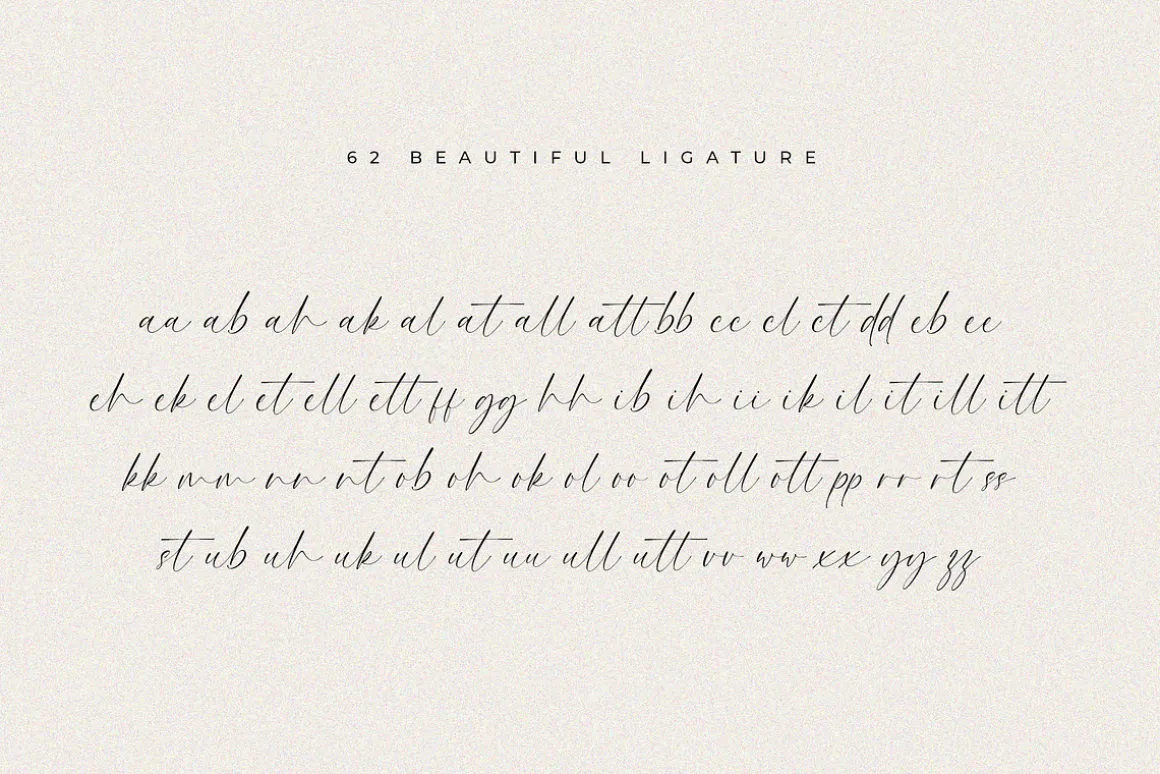 62 BEAUTIFUL LIGATURE
aa ab ah ak al at all att bb cc cl ct dd eb ee
eh ek el et ell ett ff gg hh ib ih ii ik il it ill itt
kk mm nn nt ob oh ok ol oo ot oll ott pp rr rt ss
st ub uh uk ul ut uu ull utt vv ww xx yy zz